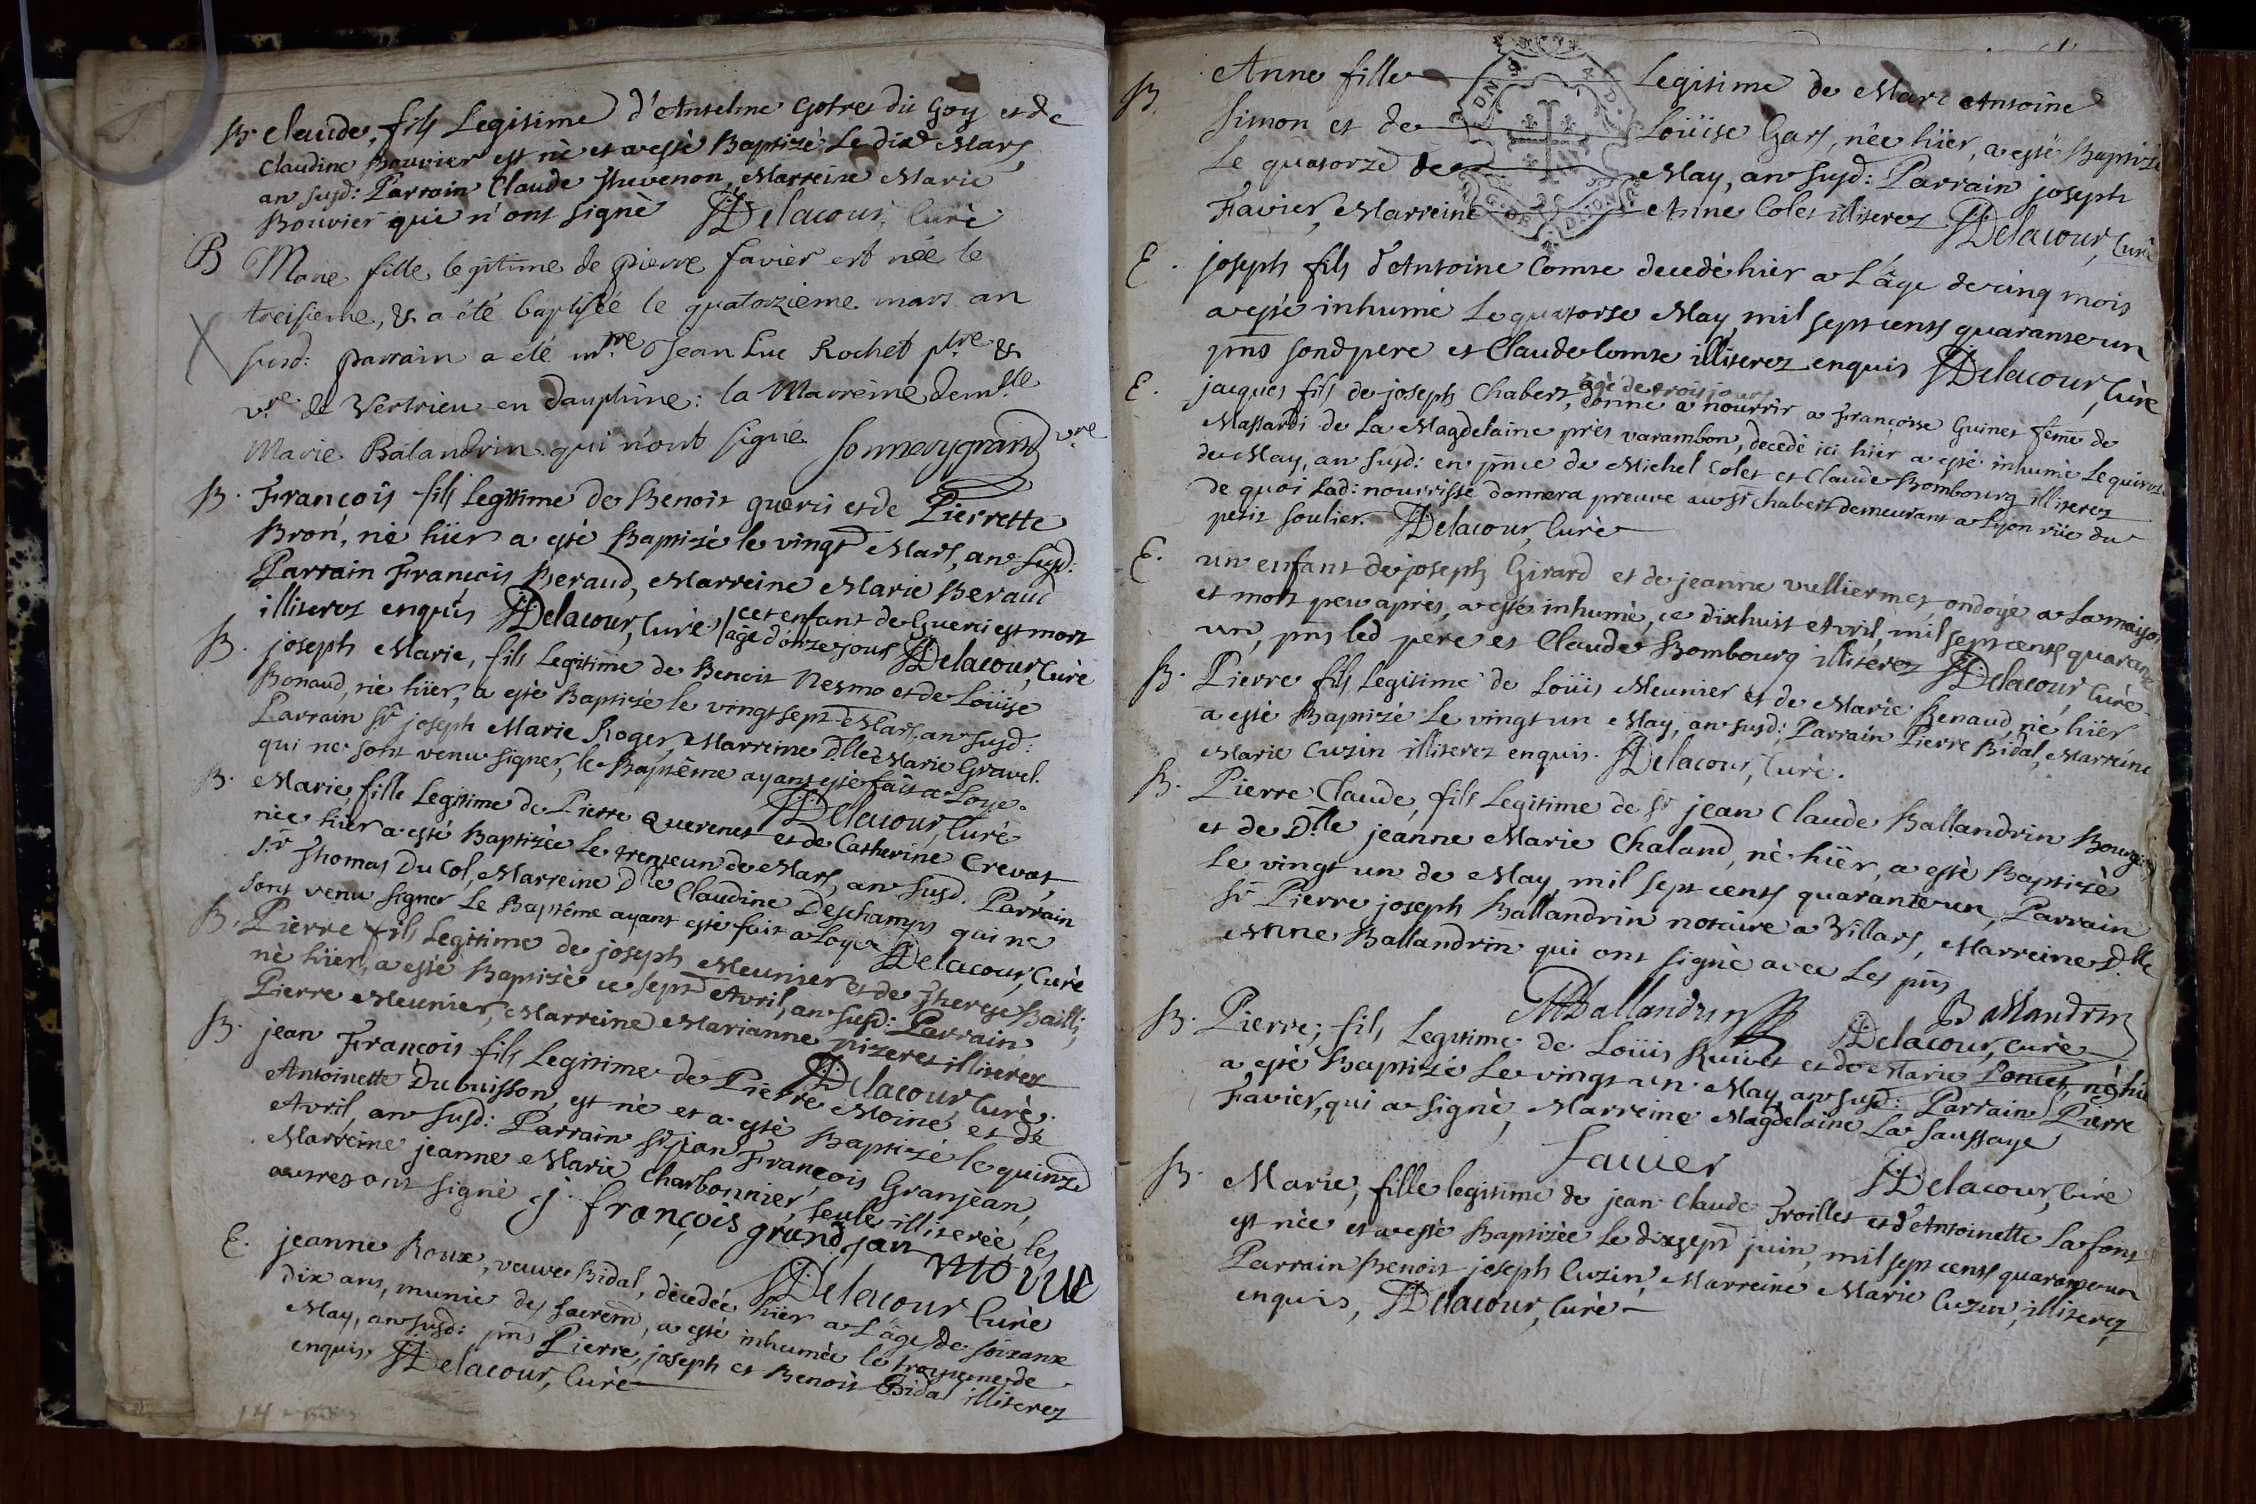 B. Claude, fils Legitime d'Anselme Gotret du Goy et de
Claudine Bouvier est né et a esté Baptizé Le dix Mars
an susd: Parrain Claude Thevenon, Marreine Marie
Bouvier qui n'ont signé Delacour, Curé
B Marie fille legitime de pierre favier est née le
treisieme, & a été baptisée le quatorzieme mars an
susd: parrain a été mre Jean Luc Rochet ptre &
vre de Vertrieu en dauphine: la Marreine demlle
Marie Balandrin qui n'ont signé. Sonnerygrand vre
B. François fils Legitime de Benoit gueri et de Pierrette
Bron, né hiër a esté Baptizé le vingt Mars, an susd:
Parrain François Beraud, Marreine Marie Beraud
illiterez enquis Delacour, Curé. cet enfant de Gueri est mort
agé d'onze jours Delacour, Curé
B. joseph Marie, fils Legitime de Benoit Nesmo et de Loüise
Bonaud, né hiër, a esté Baptizé le vingt sept Mars, an susd:
Parrain Sr joseph Marie Roger, Marreine Dlle Marie Gravel.
qui ne sont venu signer, le Baptême ayant esté fait a Loye.
Delacour, Curé
B. Marie, fille Legitime de Pierre Querenet et de Catherine Crevat,
née hiër a esté Baptizée Le trente un de Mars, an susd. Parrain
Sr Thomas Du Col, Marreine Dlle Claudine Deschamps qui ne
sont venu signer Le Baptême ayant esté fait a Loye Delacour, Curé
B. Pierre fils Legitime de joseph Meunier et de Therese Bailli,
né hiër, a esté Baptizé ce sept Avril, an susd: Parrain
Pierre Meunier, Marreine Marianne pizeret illiterez
Delacour, Curé.
B. jean François fils Legitime de Pierre Moine, et de
Antoinette Dubuisson, est né et a esté Baptizé le quinze
Avril, an susd: Parrain Sr jean François Granjean,
Marreine jeanne Marie Charbonnier, seule illiterée, les
autres ont signé j. françois grand jan moine
Delacour Curé
E. jeanne Roux, veuve Bidal, décedée hïer a L'âge de soixante
dix ans, munie des sacremt, a esté inhumée le troisieme de
May, an susd: pns Pierre, joseph et Benoit Bidal illiterez
enquis. Delacour, Curé
B. Anne fille Legitime de Marc Antoine
Simon et de Loüise Gars, née hïer, a esté Baptizée
Le quatorze de May, an susd: Parrain joseph
Favier, Marreine Anne Colet illiterez Delacour, Curé
E. joseph fils d'Antoine Comte decedé hier a L'âge de cinq mois
a esté inhumé Le quatorse May, mil sept cents quarante un
pns sond pere et Claude Comte illiterez enquis Delacour, Curé
E. jacques fils de joseph Chabert, agé de trois jours donné a nourrir a Françoise Guinet feme de
Massardi de La Magdelaine près varambon, decedé ici hiër a esté inhumé Le quinze
de May, an susd: en pnce de Michel Colet et Claude Bombourg illiterez
de quoi Lad: nourrisse donnera preuve au Sr Chabert demeurant a Lyon rüe du
petit soulier. Delacour, Curé
E. un enfant de joseph Girard et de jeanne vulliermet ondoyé a La maison
et mort peu après, a esté inhumé, ce dixhuit Avril, mil sept cents quarante
un, pns led pere et Claude Bombourg illiterez Delacour, Curé
B. Pierre fils Legitime de Loüis Meunier et de Marie Renaud, né hiër
a esté Baptizé Le vingt un May, an susd: Parrain Pierre Bidal, Marreine
Marie Cuzin illiterez enquis. Delacour, Curé.
B. Pierre Claude, fils Legitime de Sr jean Claude Ballandrin Bourg:
et de Dlle jeanne Marie Chaland, né hiër, a esté Baptizé
Le vingt un de May, mil sept cents quarante un, Parrain
Sr Pierre joseph Ballandrin notaire a Villars, Marreine Dlle
Anne Ballandrin qui ont signé avec Les pns
Ballandrin Ballandrin
Delacour, curé
B. Pierre, fils Legitime de Loüis Ruivet et de Marie Poncet, né hier
a esté Baptizé Le vingt un May an susd: Parrain Pierre
Favier, qui a signé, Marreine Magdelaine La Saussaye
favier Delacour, Curé
B. Marie, fille legitime de jean Claude Froillet et d'Antoinette Lafont
est née et a esté Baptizée Le dix sept juin, mil sept cents quarante un
Parrain Benoit joseph Cuzin, Marreine Marie Cuzin, illiterez
enquis, Delacour, Curé